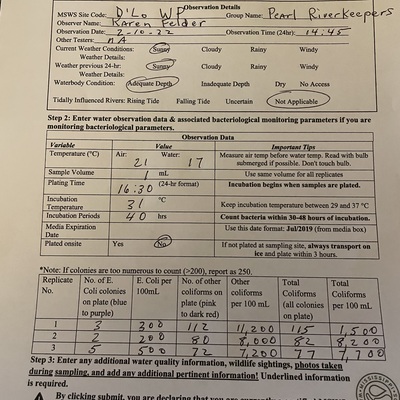 Observation Details
MSWS Site Code: D'Lo WP Group Name: Pearl Riverkeepers
Observer Name: Karen Felder
Observation Date: 2-10-22 Observation Time (24hr): 14:45
Other Testers: nA
Current Weather Conditions: Sunny Cloudy Rainy Windy
Weather Details:
Weather previous 24-hr: Sunny Cloudy Rainy Windy
Weather Details:
Waterbody Condition: Adequate Depth Inadequate Depth Dry No Access
Tidally Influenced Rivers: Rising Tide Falling Tide Uncertain Not Applicable
Step 2: Enter water observation data & associated bacteriological monitoring parameters if you are
monitoring bacteriological parameters.
Observation Data
Variable Value Important Tips
Temperature (°C) Air: 21 Water: 17 Measure air temp before water temp. Read with bulb
submerged if possible. Don't touch bulb.
Sample Volume 1 mL Use same volume for all replicates
Plating Time 16:30 (24-hr format) Incubation begins when samples are plated.
Incubation
Temperature 31 °C Keep incubation temperature between 29 and 37 °C
Incubation Periods 40 hrs Count bacteria within 30-48 hours of incubation.
Media Expiration
Date Use this date format: Jul/2019 (from media box)
Plated onsite Yes No If not plated at sampling site, always transport on
ice and plate within 3 hours.
*Note: If colonies are too numerous to count (>200), report as 250.
Replicate No. No. of E. Coli colonies on plate (blue to purple) E. Coli per 100mL No. of other coliforms on plate (pink to dark red) Other coliforms per 100 mL Total Coliforms (all colonies on plate) Total Coliforms per 100 mL
1 3 300 112 11,200 115 1,500
2 2 200 80 8,000 82 8,200
3 5 500 72 7,200 77 7,700
Step 3: Enter any additional water quality information, wildlife sightings, photos taken
during sampling, and add any additional pertinent information! Underlined information
is required.
By clicking submit, you are declaring that you are